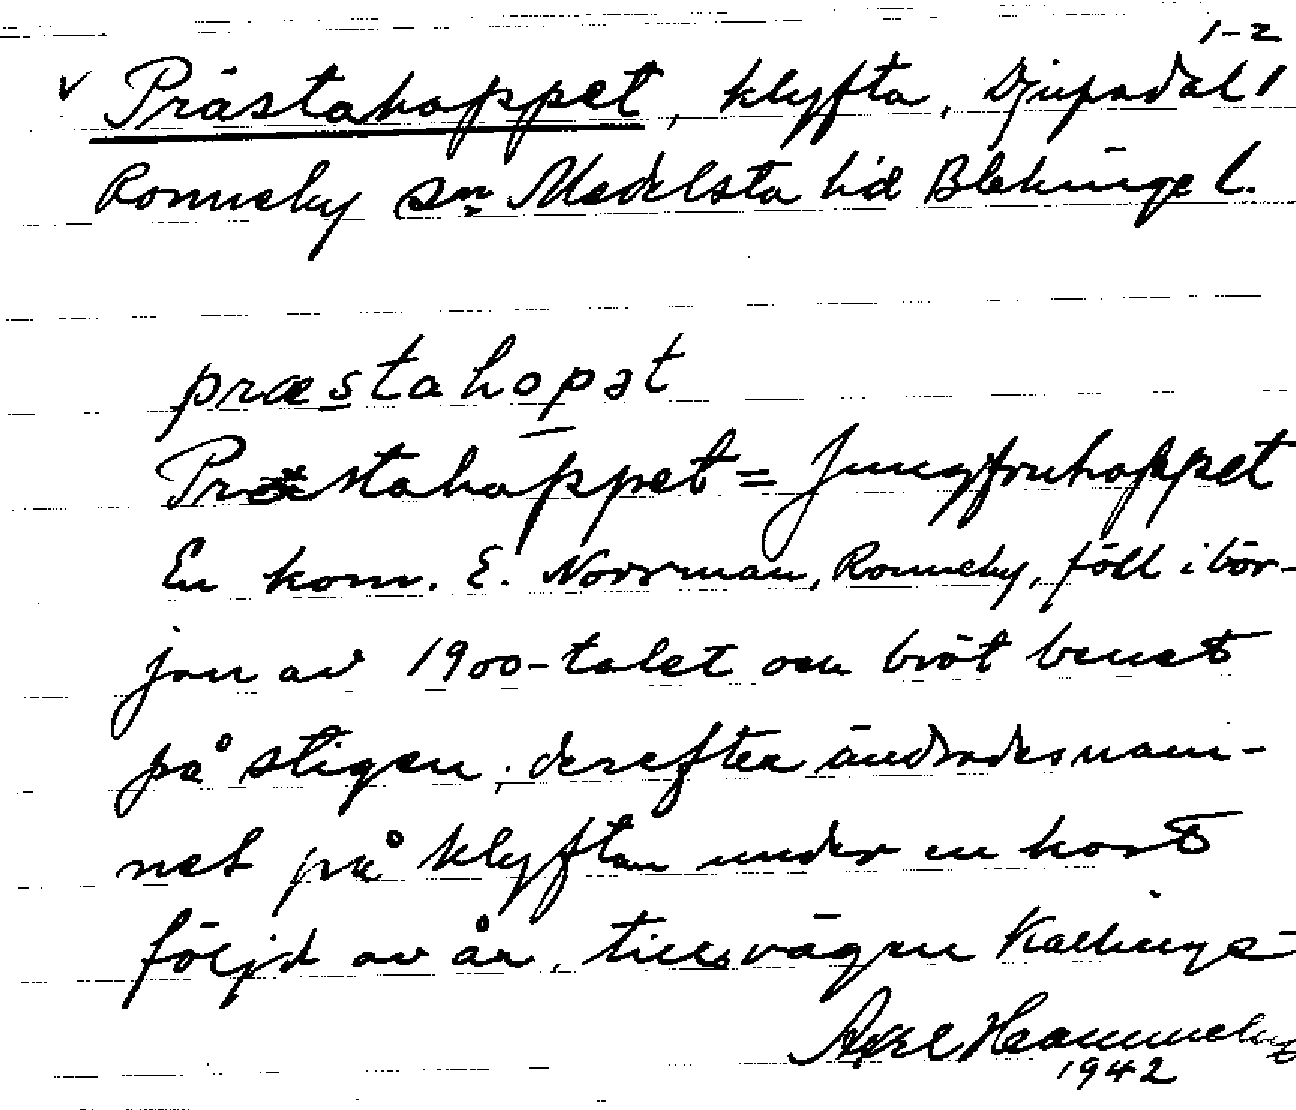 1-2
√ Prästahoppet, klyfta, Djupadal 1
Ronneby sn Medelsta hd Blekinge l.
præstahopət
Prästahoppet = Jungfruhoppet
En kom. E. Norrman, Ronneby, föll i bör-
jan av 1900-talet och bröt benet
på stigen, derefter ändrades nam-
net på klyftan under en kort
följd av år, tills vägen Kallinge-
Axel
1942